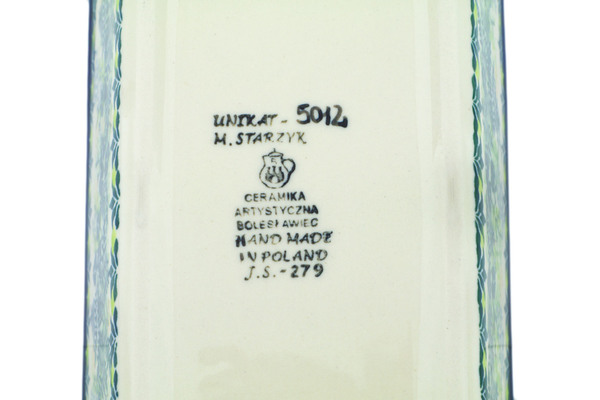 UNIKAT - 5012
M. STARZYK
CERAMIKA
ARTYSTYCZNA
BOLESŁAWIEC
HAND MADE
IN POLAND
J.S. - 279